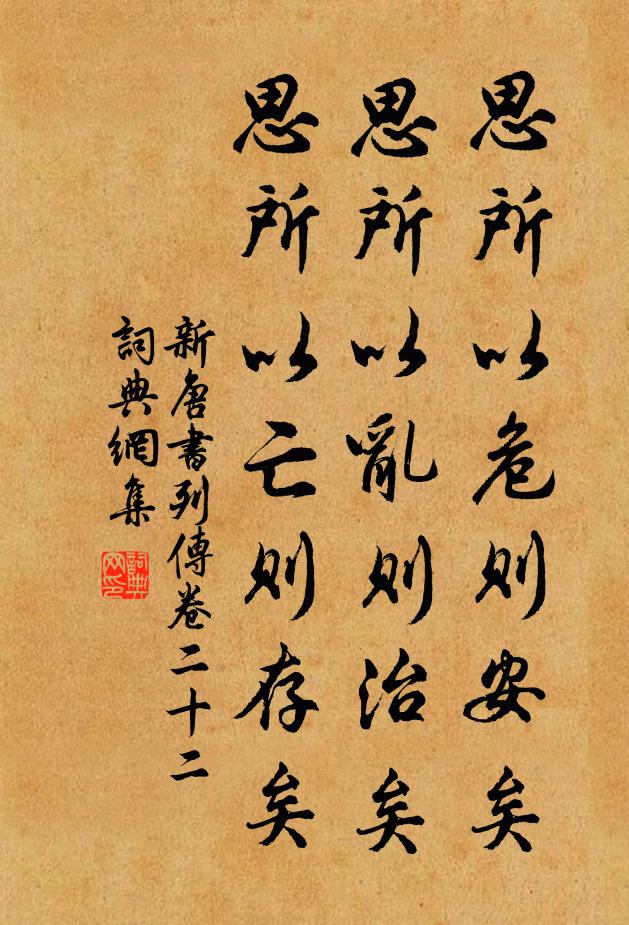 思所以危則安矣
思所以亂則治矣
思所以亡則存矣
新唐書列傳卷二十二
詞典網集
詞典
网印